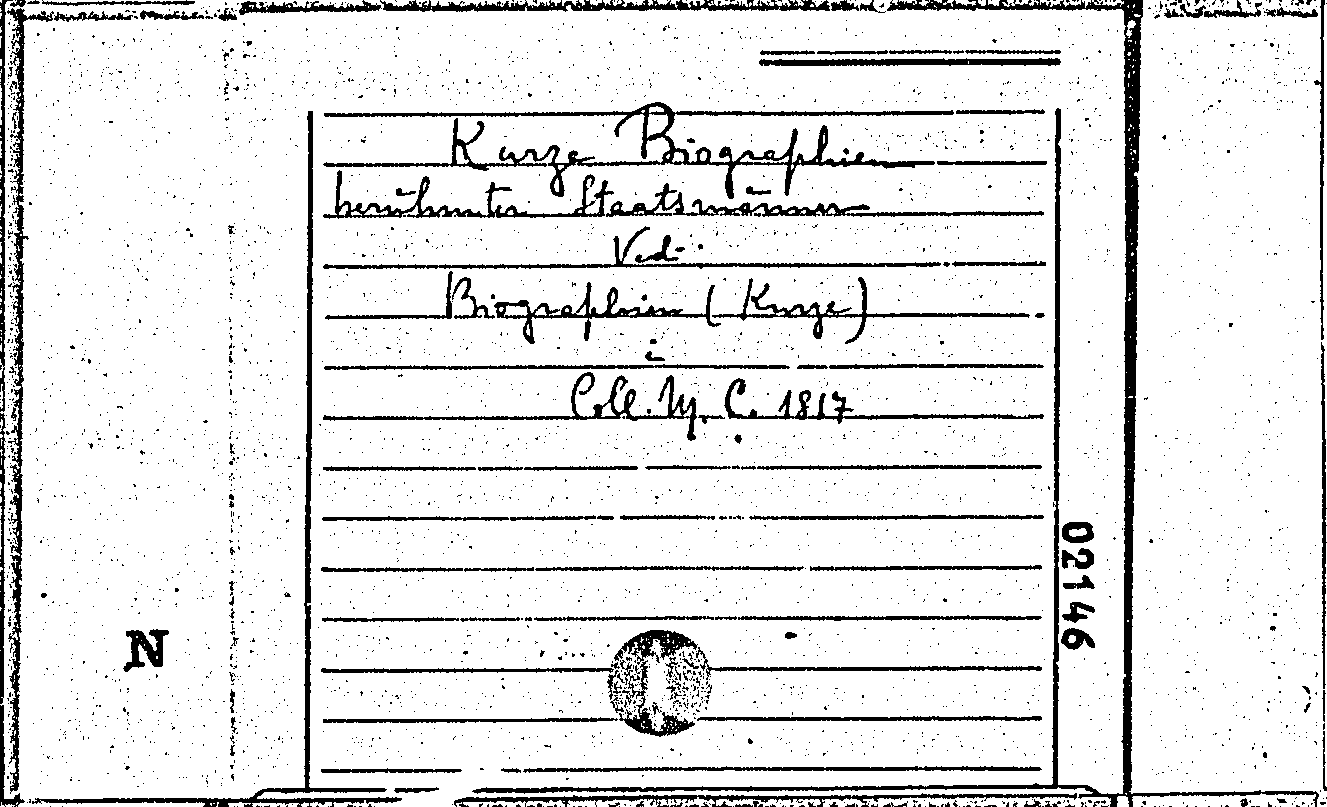 Kurze Biographien
berühmter Staatsmänner
Ved.
Biographien (Kurze)
i
Coll. M. C. 1817
02146
N